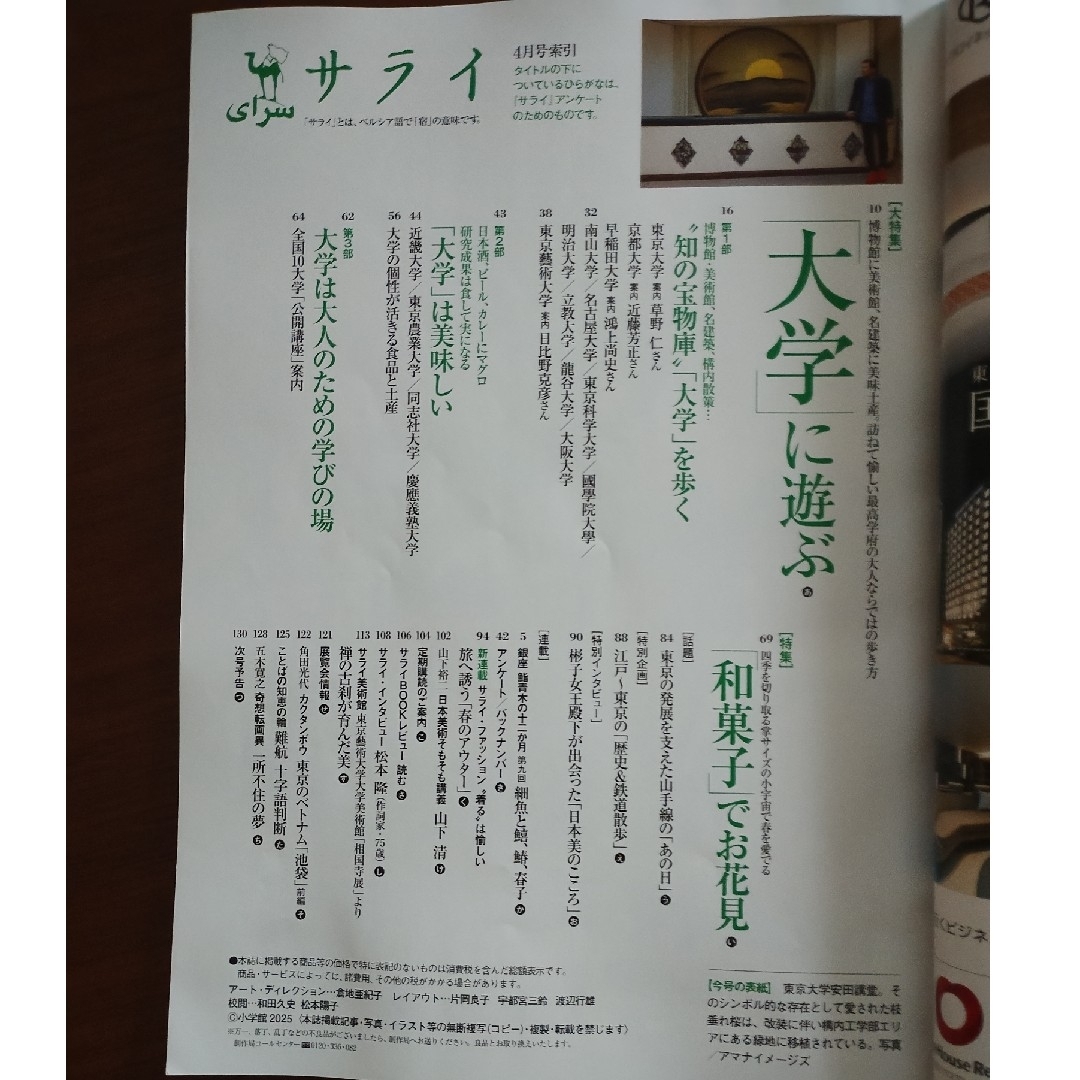 サライ
سرای
「サライ」とは、ペルシア語で「宿」の意味です。
4月号索引
タイトルの下に
ついているひらがなは、
『サライ』アンケート
のためのものです。
[大特集]
10 博物館に美術館、名建築に美味土産。訪ねて愉しい最高学府の大人ならではの歩き方
「大学」に遊ぶ あ
16 第1部
博物館・美術館、名建築、構内散策…
“知の宝物庫”「大学」を歩く
東京大学 案内 草野 仁さん
京都大学 案内 近藤芳正さん
早稲田大学 案内 鴻上尚史さん
32 南山大学/名古屋大学/東京科学大学/國學院大學/
明治大学/立教大学/龍谷大学/大阪大学
38 東京藝術大学 案内 日比野克彦さん
43 第2部
日本酒、ビール、カレーにマグロ
研究成果は食して実になる
「大学」は美味しい
44 近畿大学/東京農業大学/同志社大学/慶應義塾大学
56 大学の個性が活きる食品と土産
62 第3部
大学は大人のための学びの場
64 全国10大学「公開講座」案内
[特集]
69 四季を切り取る掌サイズの小宇宙で春を愛でる
「和菓子」でお花見 い
[話題]
84 東京の発展を支えた山手線の「あの日」 う
[特別企画]
88 江戸〜東京の「歴史&鉄道散歩」 え
[特別インタビュー]
90 彬子女王殿下が出会った「日本美のこころ」 お
[連載]
5 銀座 鮨青木の十二か月 第九回 細魚と鱚、鰆、春子 か
42 アンケート/バックナンバー き
94 新連載 サライ・ファッション “着る”は愉しい
旅へ誘う「春のアウター」 く
102 山下裕二 日本美術そもそも講義 山下 清 け
104 定期購読のご案内 こ
106 サライBOOKレビュー 読む さ
108 サライ・インタビュー 松本 隆(作詞家・75歳) し
113 サライ美術館 東京藝術大学大学美術館「相国寺展」より
禅の古刹が育んだ美 す
121 展覧会情報 せ
122 角田光代 カクタンボウ 東京のベトナム「池袋」前編 そ
125 ことばの知恵の輪 難航 十字語判断 た
128 五木寛之 奇想転画異 一所不住の夢 ち
130 次号予告 つ
●本誌に掲載する商品等の価格で特に表記のないものは消費税を含んだ総額表示です。
商品・サービスによっては、諸費用、その他の税がかかる場合があります。
アート・ディレクション…倉地亜紀子 レイアウト…片岡良子 宇都宮三鈴 渡辺行雄
校閲…和田久史 松本陽子
©小学館 2025〈本誌掲載記事・写真・イラスト等の無断複写(コピー)・複製・転載を禁じます〉
※万一、落丁、乱丁などの不良品がございましたら、制作局へお送りください。良品とお取り換えいたします。
制作局コールセンター☎0120-336-082
【今号の表紙】 東京大学安田講堂。そ
のシンボル的な存在として愛された枝
垂れ桜は、改装に伴い構内工学部エリ
アにある緑地に移植されている。写真
/アマナイメージズ
東
国
くビジネ
House Re